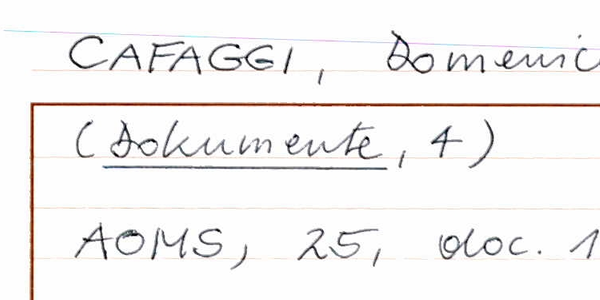 CAFAGGI, Domenic
(Dokumente, 4)
AOMS, 25, doc. 1